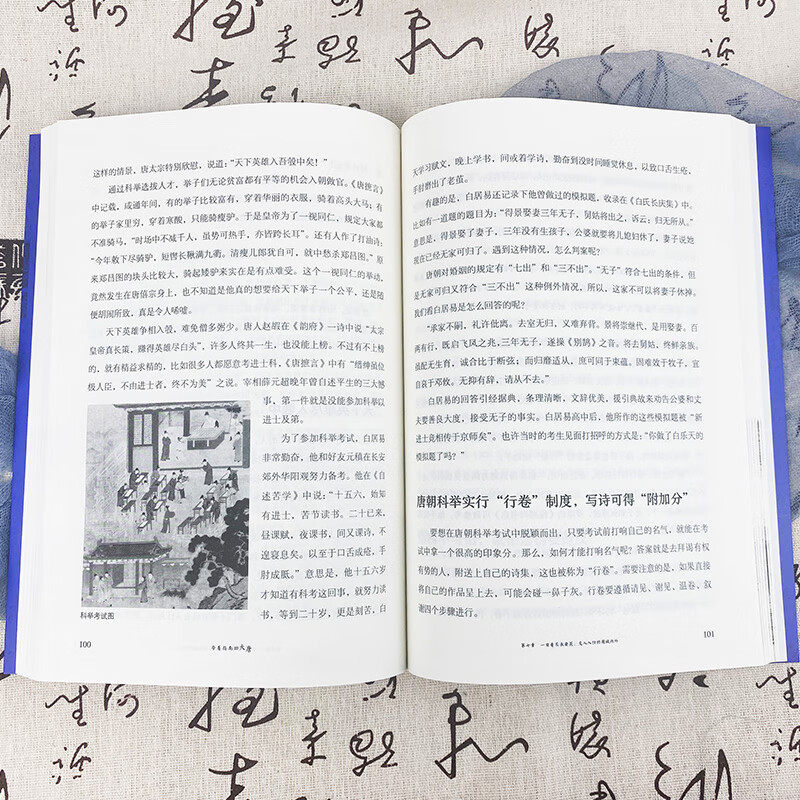 这样的情景，唐太宗特别欣慰，说道：“天下英雄入吾彀中矣！”
通过科举选拔人才，举子们无论贫富都有平等的机会入朝做官。《唐摭言》
中记载，咸通年间，有的举子比较富有，穿着华丽的衣服，骑着高头大马；有
的举子家里穷，穿着寒酸，只能骑瘦驴。于是皇帝为了一视同仁，规定大家都
不准骑马，“时场中不减千人，虽势可热手，亦皆跨长耳”。还有人作了打油诗：
“今年敕下尽骑驴，短辔长鞦满九衢。清瘦儿郎犹自可，就中愁杀郑昌图。”原
来郑昌图的块头比较大，骑起矮驴来实在是有点难受。这个一视同仁的举动，
竟然发生在唐僖宗身上，也不知道是他真的想要给天下举子一个公平，还是随
便胡闹所致，真是令人唏嘘。
天下英雄争相入彀，难免僧多粥少。唐人赵嘏在《韵府》一诗中说“太宗
皇帝真长策，赚得英雄尽白头”，许多人终其一生，也没能上榜。不过有不上榜
的，就有精益求精的，比如很多人都愿意考进士科，《唐摭言》中有“缙绅虽位
极人臣，不由进士者，终不为美”之说。宰相薛元超晚年曾自述平生的三大憾
事，第一件就是没能参加科举以
进士及第。
为了参加科举考试，白居易
非常勤奋，他和好友元稹在长安
郊外华阳观努力备考。他在《自
述苦学》中说：“十五六，始知
有进士，苦节读书。二十已来，
昼课赋，夜课书，间又课诗，不
遑寝息矣。以至于口舌成疮，手
肘成胝。”意思是，他十五六岁
才知道有科考这回事，就努力读
书，等到二十岁，更是刻苦，白
科举考试图
100
大唐
天学习赋文，晚上学书，间或着学诗，勤奋到没时间睡觉休息，以致口舌生疮，
手肘磨出了老茧。
有趣的是，白居易还记录下他曾做过的模拟题，收录在《白氏长庆集》中。
比如有一道题的题目为：“得景娶妻三年无子，舅姑将出之，诉云：归无所从。”
意思是，得景娶了妻子，三年没有生孩子，公婆就要将儿媳妇休了，妻子说她
现在已经无家可归了。遇到这种情况，怎么判案呢？
唐朝对婚姻的规定有“七出”和“三不出”。“无子”符合七出的条件，但
是无家可归又符合“三不出”这种例外情况，所以，这家不可以将妻子休掉。
我们看白居易是怎么回答的呢？
“承家不嗣，礼许仳离。去室无归，义难弃背。景将崇继代，是用娶妻。百
两有行，既启飞凤之兆，三年无子，遂操《别鹄》之音。将去舅姑，终鲜亲族。
虽配无生育，诚合比于断弦；而归靡适从，庶可同于束蕴。固难效于牧子，宜
自哀于邓攸。无抑有辞，请从不去。”
白居易的回答引经据典，条理清晰，文辞优美，援引典故来劝告公婆和丈
夫要善良大度，接受无子的事实。白居易高中后，他所作的这些模拟题被“新
进士竞相传于京师矣”。也许当时的考生见面打招呼的方式是：“你做了白乐天的
模拟题了吗？”
唐朝科举实行“行卷”制度，写诗可得“附加分”
要想在唐朝科举考试中脱颖而出，只要考试前打响自己的名气，就能在考
试中拿一个很高的印象分。那么，如何才能打响名气呢？答案就是去拜谒有权
有势的人，附送上自己的诗集，这也被称为“行卷”。需要注意的是，如果直接
将自己的作品呈上去，可能会碰一鼻子灰。行卷要遵循请见、谢见、温卷、叙
谢四个步骤进行。
101